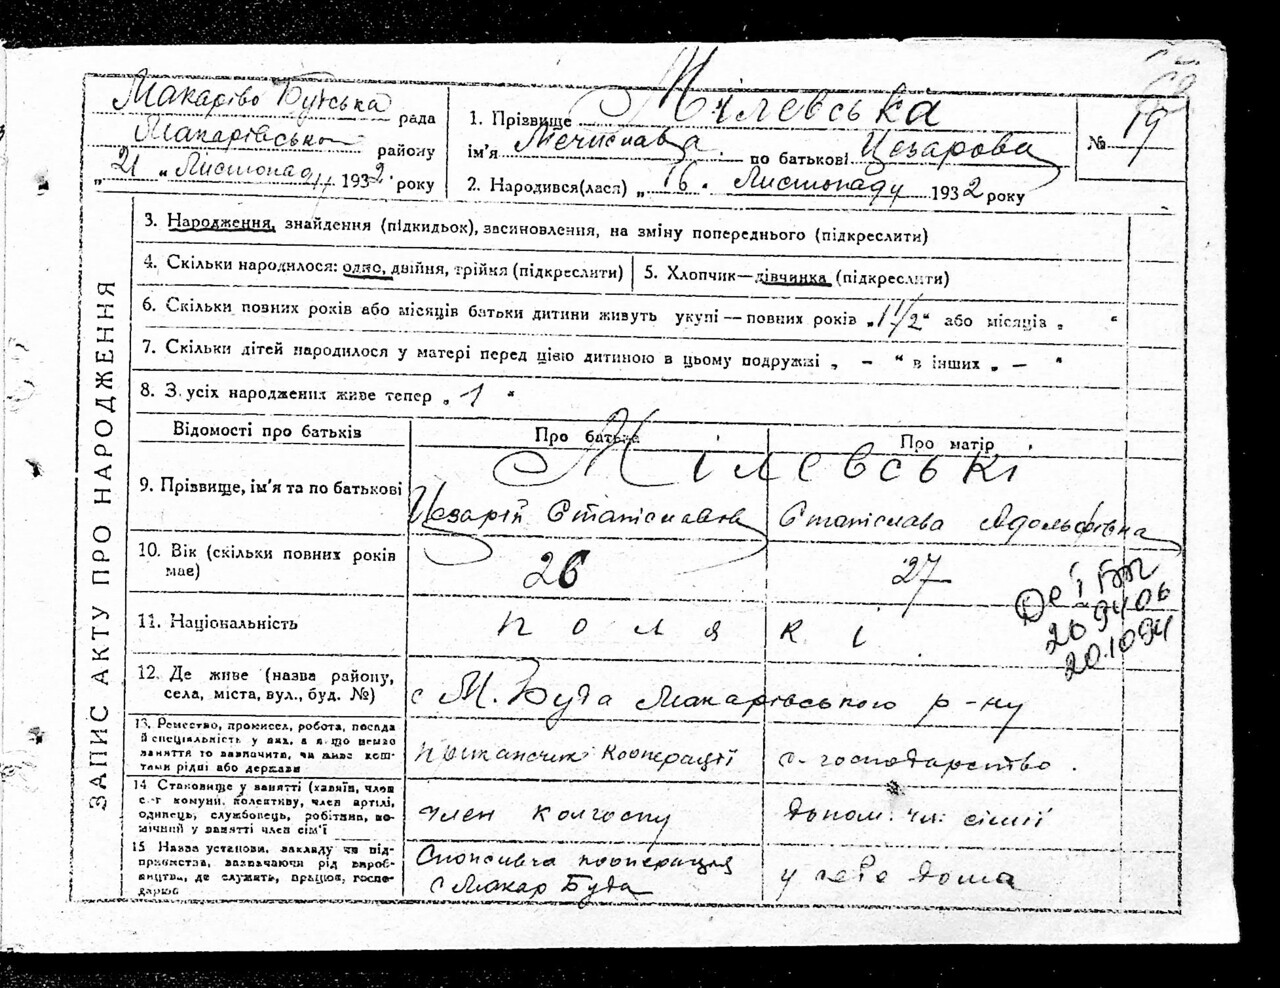 Макарівο Бутська рада
Макарівського району
„21 „ Листопаду 1932 року
1. Прізвище Мілевська
ім'я Мечислава по батькові Цезарова
2. Народився(лася) „ 16. Листопаду 1932 року
№ 19
ЗАПИС АКТУ ПРО НАРОДЖЕННЯ
3. Народження, знайдення (підкидьок), засиновлення, на зміну попереднього (підкреслити)
4. Скільки народилося: одно, двійня, трійня (підкреслити)
5. Хлопчик—дівчинка (підкреслити)
6. Скільки повних років або місяців батьки дитини живуть укупі — повних років „1 1/2" або місяців „ "
7. Скільки дітей народилося у матері перед цією дитиною в цьому подружжі „ – " в інших „ – "
8. З усіх народження живе тепер „ 1 "
Відомості про батьків
Про батька
Про матір
9. Прізвище, ім'я та по батькові
Мілевські
Цезарій Станіславов
Станіслава Адольфівна
10. Вік (скільки повних років має)
26
27
11. Національність
поляки
12. Де живе (назва району, села, міста, вул., буд. №)
с М. Буда Макарівського р-ну
13. Ремество, промисел, робота, посада й спеціяльність у них, а якщо немає заняття то зазначити, чи живе коштами рідні або держави
Кооперації
с. господарство.
14 Становище у занятті (хазяїн, член с.-г комуни, колективу, член артілі, одинець, службовець, робітник, помічний у занятті член сім'ї
член колгоспу
Допом. чл. сімії
15 Назва установи, закладу чи підприємства, зазначаючи рід виробництва, де служить, працює, господарює
Споживча кооперація
с Макар Буда
у себе дома
20.10 94